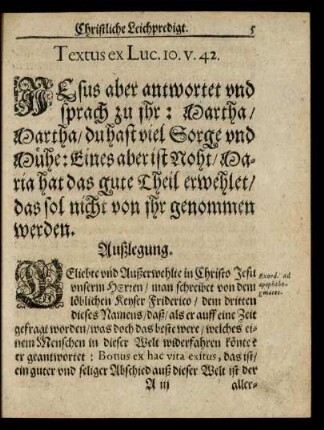 Christliche Leichpredigt. 5
Textus ex Luc. 10. v. 42.
JEsus aber antwortet vnd
sprach zu jhr: Martha/
Martha/ du hast viel Sorge vnd
Mühe: Eines aber ist Noht/ Ma-
ria hat das gute Theil erwehlet/
das sol nicht von jhr genommen
werden.
Außlegung.
GEliebte vnd Außerwehlte in Christo Jesu
vnserm HErren/ man schreibet von dem
löblichen Keyser Friderico/ dem dritten
dieses Namens/ daß/ als er auff eine Zeit
gefragt worden/ was doch das beste were/ welches ei-
nem Menschen in dieser Welt widerfahren könte?
er geantwortet: Bonus ex hac vita exitus, das ist/
ein guter vnd seliger Abschied auß dieser Welt ist der
A iij aller-
Exord. ad